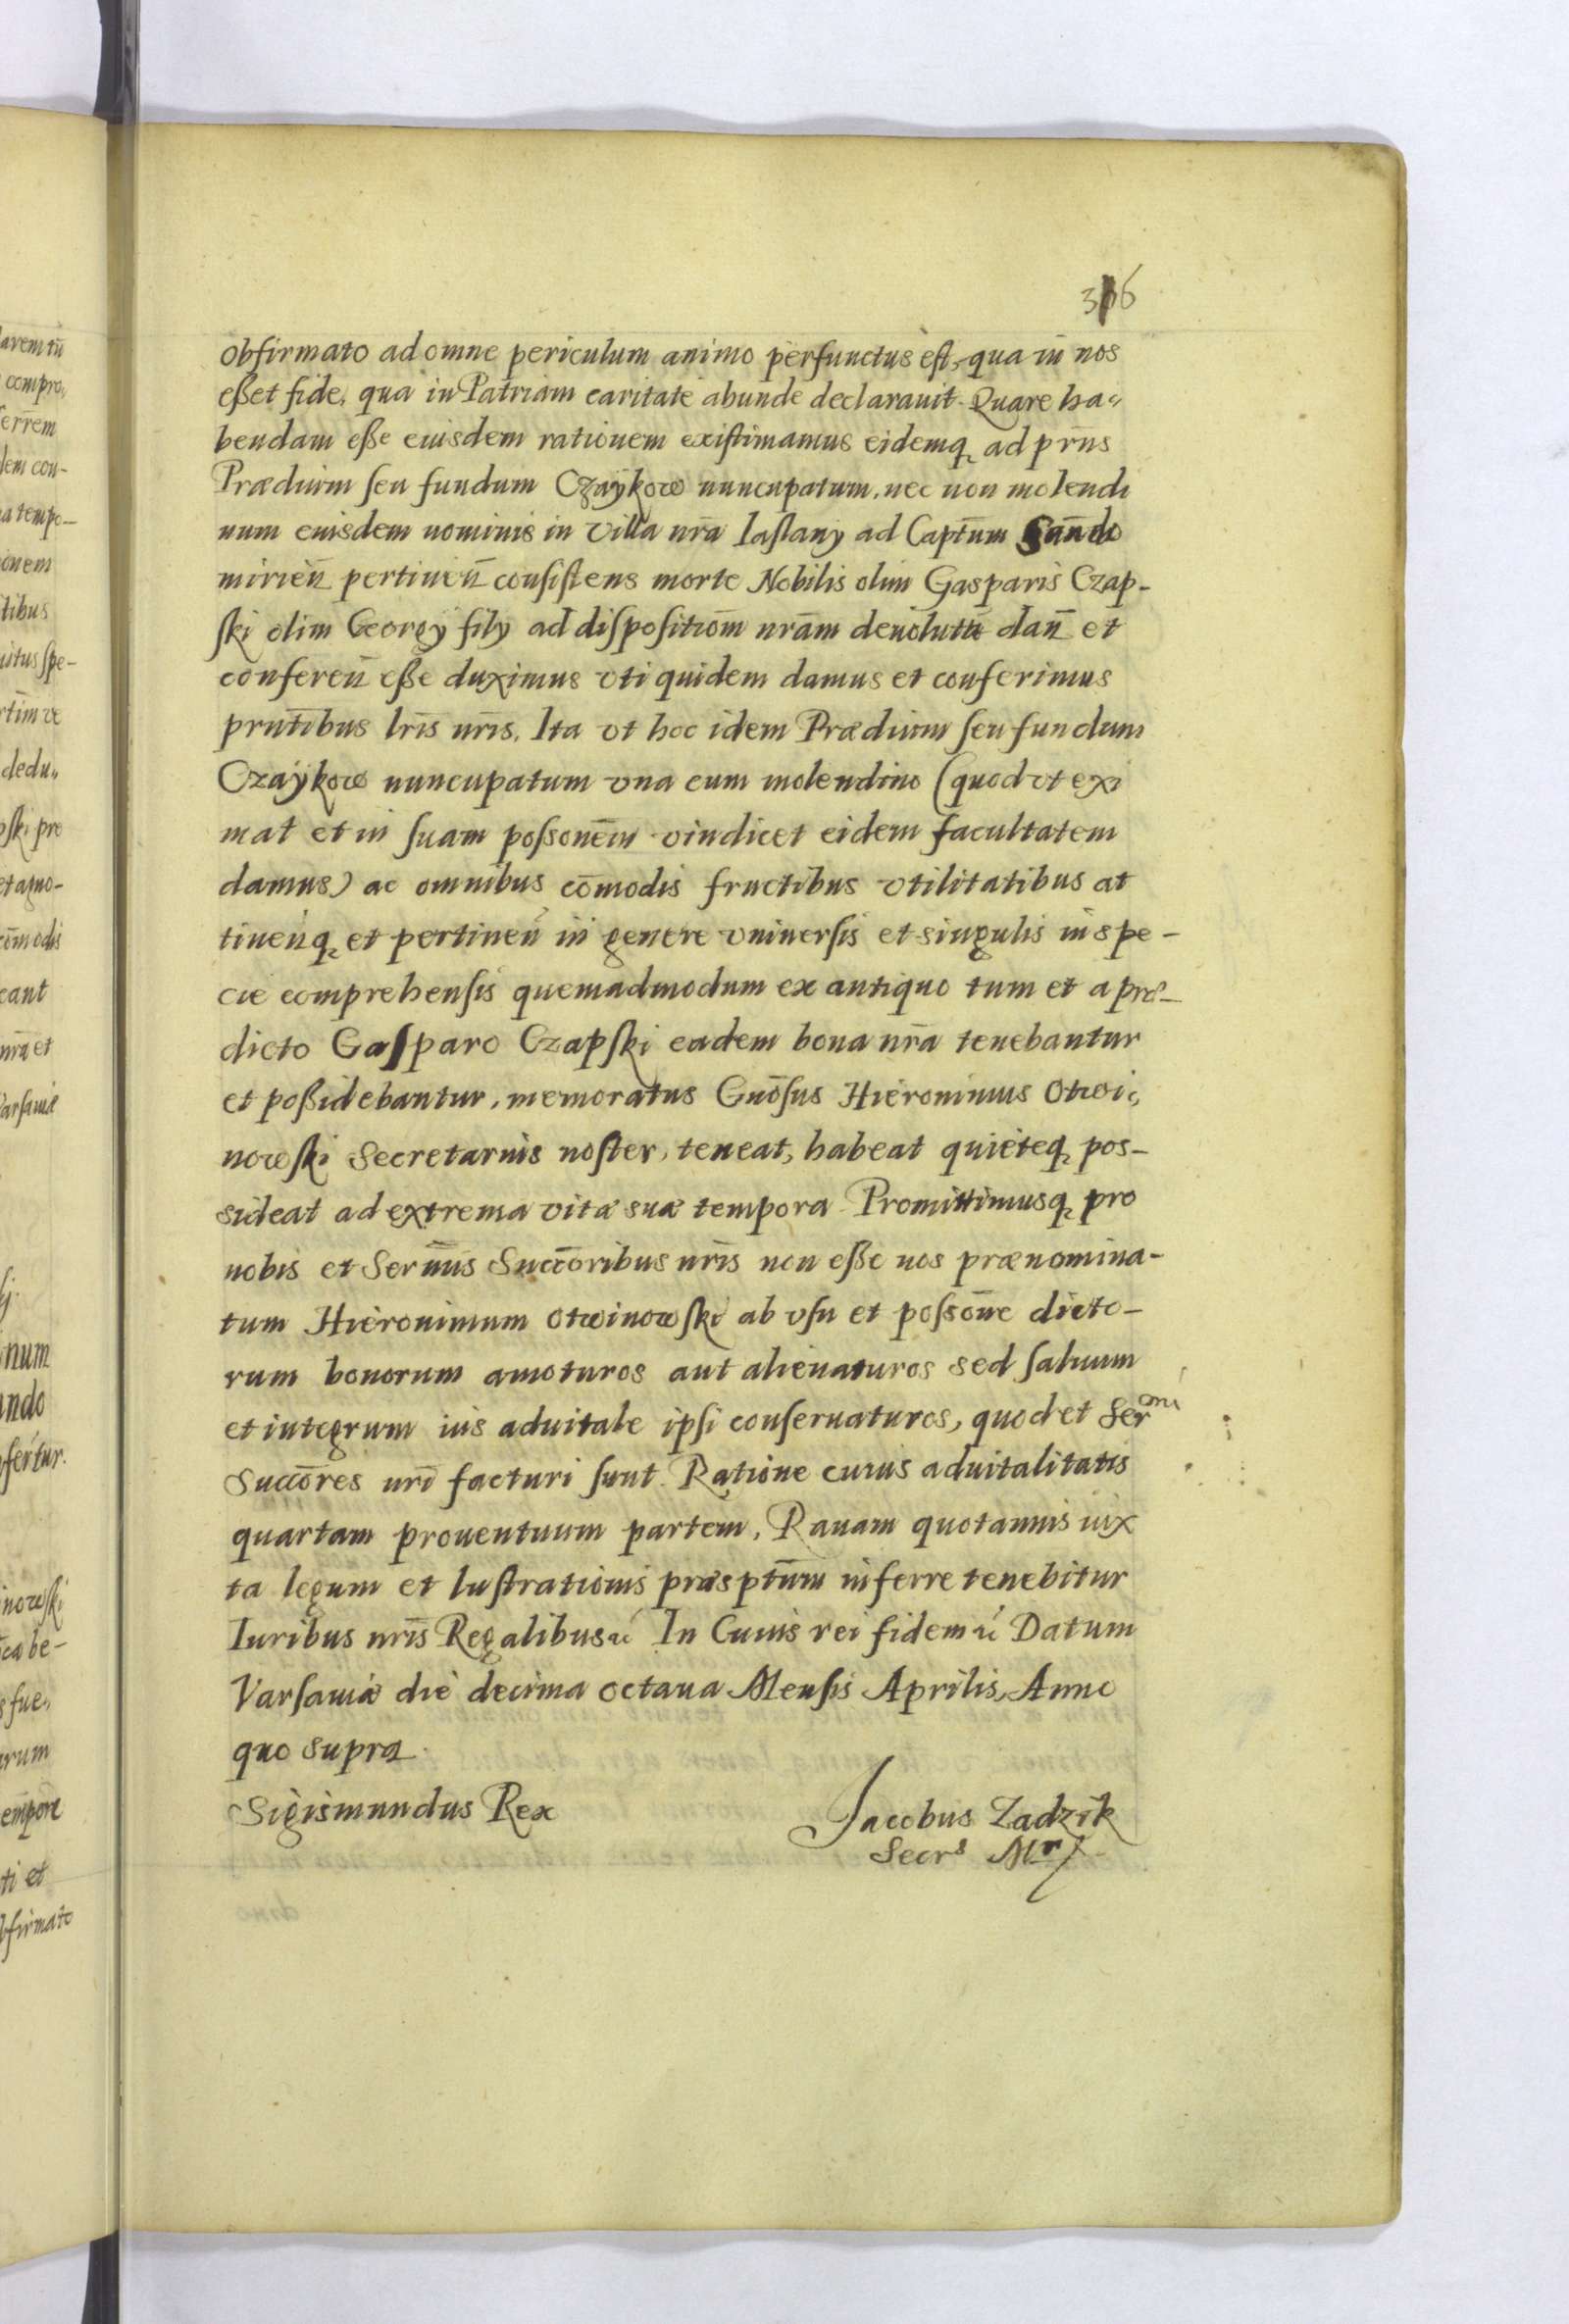 316
obfirmato ad omne periculum animo perfunctus est, qua in nos
eßet fide, qua in Patriam caritate abunde declarauit. Quare ha„
bendam eße euisdem rationem existimamus eidemq ad prn̄s
Prædium seu fundum Czaÿkow nuncupatum, nec non molendi
num euisdem nominis in villa nr̄a Iaslany ad Captn̄um Sando
mirien̄ pertinen̄ consistens morte Nobilis olim Gasparis Czap-
ski olim Georgÿ filÿ ad dispositiōm nrām deuolutū dan̄ et
conferen̄ eße duximus vti quidem damus et conferimus
prn̄tibus lrīs nrīs. Ita vt hoc idem Prædium seu fundum
Czaÿkow nuncupatum vna cum molendino (quod vt exi
mat et in suam possonēm vindicet eidem facultatem
damus) ac omnibus cōmodis fructibus vtilitatibus at
tinen̄q et pertinen̄ in genere vniuersis et singulis in spe-
cie comprehensis quemadmodum ex antiquo tum et a præ-
dicto Gasparo Czapski eadem bona nr̄a tenebantur
et poßidebantur, memoratus Gnōsus Hieronimus Otwi„
nowski Secretarius noster, teneat, habeat quieteq pos-
sideat ad extrema vitæ suæ tempora Promittimusq pro
nobis et Serm̄is Succōribus nrīs non eße nos prænomina-
tum Hieronimum Otwinowski ab vsu et possōne dicto-
rum bonorum amoturos aut alienaturos sed saluum
et integrum ius aduitale ipsi conseruaturos, quod et Serm̄i
Succōres nrī facturi sunt. Ratione cuius aduitalitatis
quartam prouentuum partem, Rauam quotannis iux
ta legum et lustrationis præsptūm inferre tenebitur
Iuribus nrīs Regalibus &c In Cuius rei fidem &c Datum
Varsauiæ die decima octaua Mensis Aprilis, Anno
quo supra.
Sigismundus Rex
Jacobus Zadzik
Secrs Mr